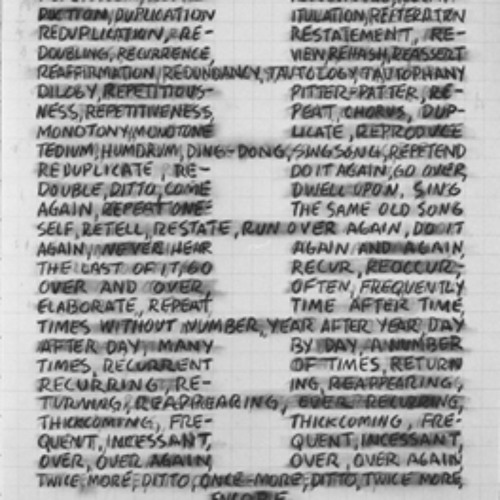 DUCTION, DUPLICATION
REDUPLICATION, RE-
DOUBLING, RECURRENCE,
ITULATION, REITERATION
RESTATEMENT, RE-
VIEW, REHASH, REASSERT
REAFFIRMATION, REDUNDANCY, TAUTOLOGY, TAUTOPHANY
DILOGY, REPETITIOUS-
NESS, REPETITIVENESS,
MONOTONY, MONOTONE
PITTER-PATTER, RE-
PEAT, CHORUS, DUP-
LICATE, REPRODUCE
TEDIUM, HUMDRUM, DING-DONG, SINGSONG, REPETEND
REDUPLICATE, RE-
DOUBLE, DITTO, COME
AGAIN, REPEAT ONE
DO IT AGAIN, GO OVER,
DWELL UPON, SING
THE SAME OLD SONG
SELF, RETELL, RESTATE, RUN OVER AGAIN, DO IT
AGAIN, NEVER HEAR
THE LAST OF IT, GO
OVER AND OVER,
ELABORATE, REPEAT,
AGAIN AND AGAIN,
RECUR, REOCCUR,
OFTEN, FREQUENTLY
TIME AFTER TIME,
TIMES WITHOUT NUMBER, YEAR AFTER YEAR, DAY
AFTER DAY, MANY
TIMES, RECURRENT
RECURRING, RE-
BY DAY, A NUMBER
OF TIMES, RETURN
ING, REAPPEARING,
TURNING, REAPPEARING, EVER RECURRING,
THICKCOMING, FRE-
QUENT, INCESSANT,
OVER, OVER AGAIN,
THICKCOMING, FRE-
QUENT, INCESSANT,
OVER, OVER AGAIN,
TWICE MORE, DITTO, ONCE-MORE, DITTO, TWICE MORE,
ENCORE